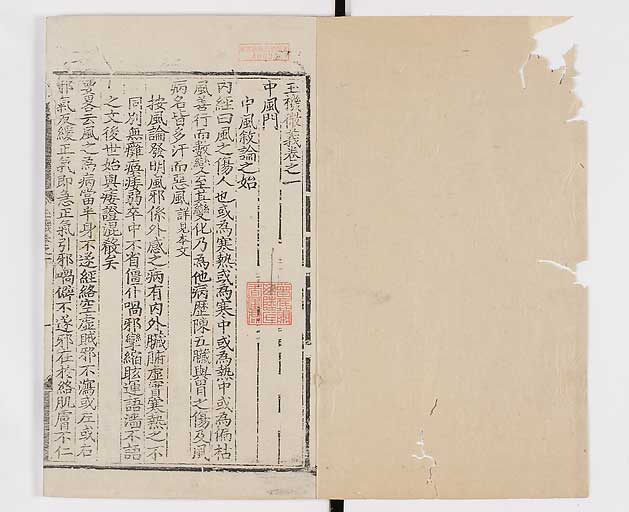 玉機微義卷之一
中風門
中風敘論之始
內經曰風之傷人也或為寒熱或為寒中或為熱中或為偏枯
風善行而數變至其變化乃為他病歷陳五臟與胃之傷及風
病名皆多汗而惡風詳見本文
按風論發明風邪係外感之病有內外臟腑虛實寒熱之不
同別無癱瘓痿弱卒中不省僵仆喎邪攣縮眩運語澁不語
之文後世始與痿證混殽矣
要畧云風之為病當半身不遂經絡空虛賊邪不瀉或左或右
邪氣反緩正氣即急正氣引邪喎僻不遂邪在於絡肌膚不仁